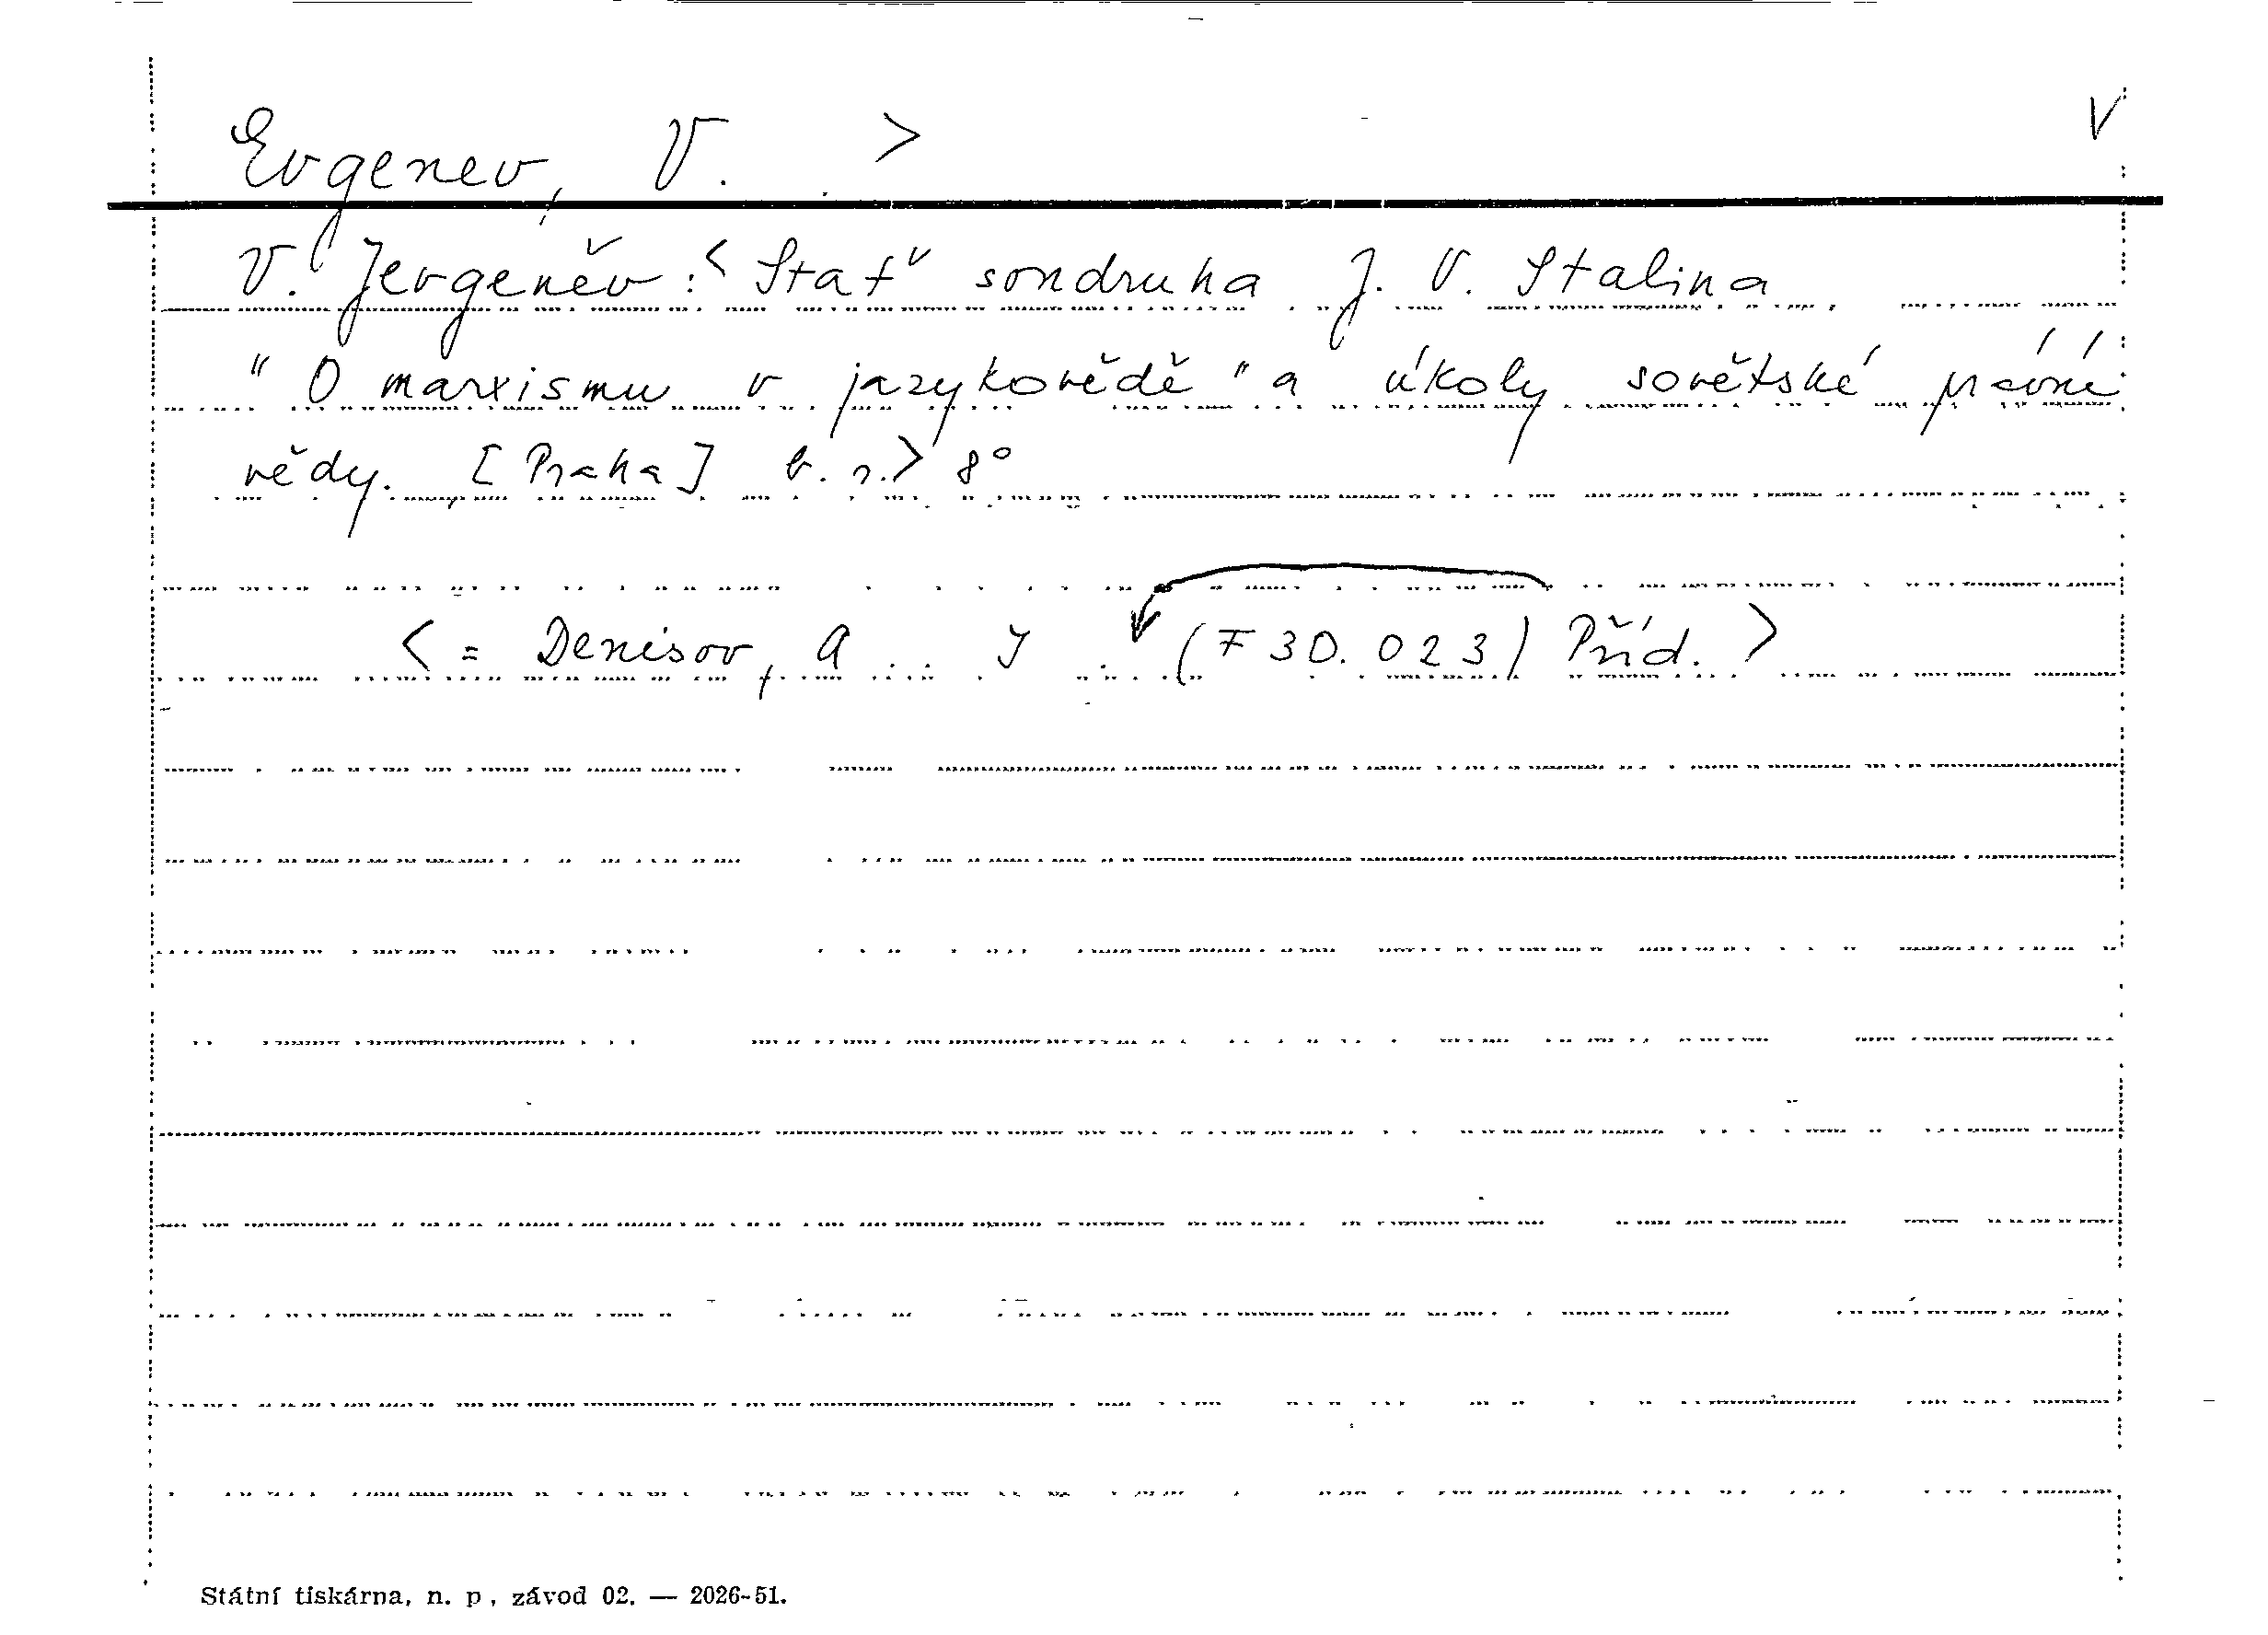 Evgenev, V. >
V
V. Jevgeněv: < Stať soudruha J. V. Stalina
"O marxismu v jazykovědě" a úkoly sovětské právní
vědy. [Praha] b. r. > 8°
< = Denisov, A. I. (F 30.023) Příd. >
Státní tiskárna, n. p., závod 02. — 2026-51.